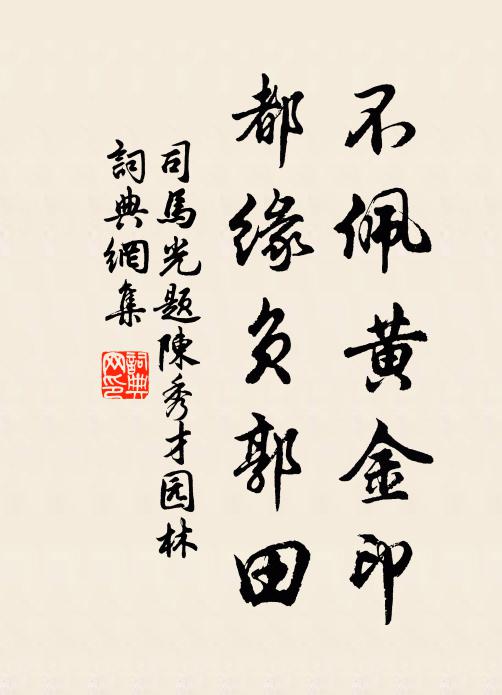 不佩黄金印
都緣负郭田
司馬光题陳秀才园林
詞典網集
詞典网印